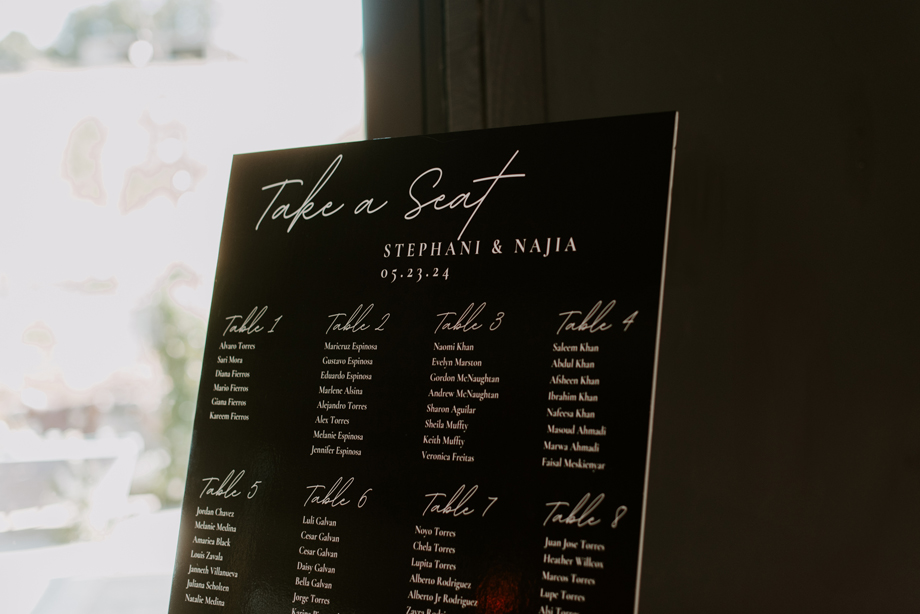 Take a Seat
STEPHANI & NAJIA
05.23.24
Table 1
Alvaro Torres
Sari Mora
Diana Fierros
Mario Fierros
Giana Fierros
Kareem Fierros
Table 2
Maricruz Espinosa
Gustavo Espinosa
Eduardo Espinosa
Marlene Alsina
Alejandro Torres
Alex Torres
Melanie Espinosa
Jennifer Espinosa
Table 3
Naomi Khan
Evelyn Marston
Gordon McNaughtan
Andrew McNaughtan
Sharon Aguilar
Sheila Muffty
Keith Muffty
Veronica Freitas
Table 4
Saleem Khan
Abdul Khan
Afsheen Khan
Ibrahim Khan
Nafeesa Khan
Masoud Ahmadi
Marwa Ahmadi
Faisal Meskienyar
Table 5
Jordan Chavez
Melanie Medina
Amarica Black
Louis Zavala
Janneth Villanueva
Juliana Scholten
Natalie Medina
Table 6
Luli Galvan
Cesar Galvan
Cesar Galvan
Daisy Galvan
Bella Galvan
Jorge Torres
Table 7
Noyo Torres
Chela Torres
Lupita Torres
Alberto Rodriguez
Alberto Jr Rodriguez
Table 8
Juan Jose Torres
Heather Willcox
Marcos Torres
Lupe Torres